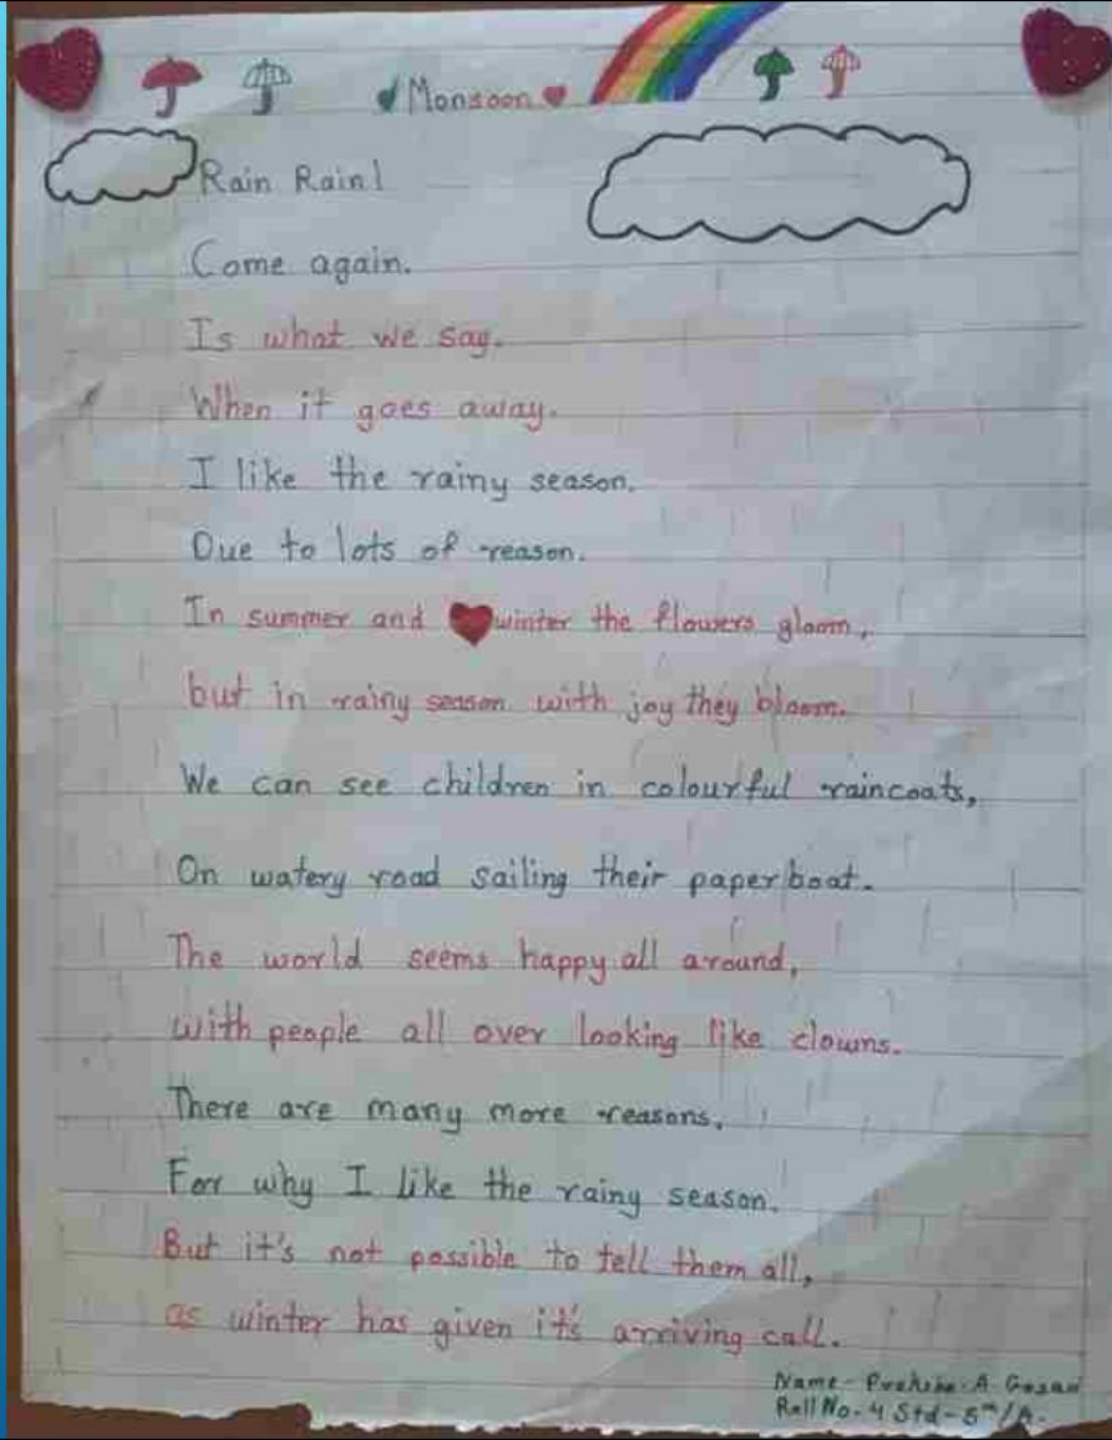 Monsoon
Rain Rain!
Come again.
Is what we say.
When it goes away.
I like the rainy season.
Due to lots of reason.
In summer and winter the flowers gloom,
but in rainy season with joy they bloom.
We can see children in colourful raincoats,
On watery road sailing their paper boat.
The world seems happy all around,
with people all over looking like clowns.
There are many more reasons,
For why I like the rainy season.
But it's not possible to tell them all,
as winter has given it's arriving call.
Name - A
Roll No. 4 Std - 5th/A.